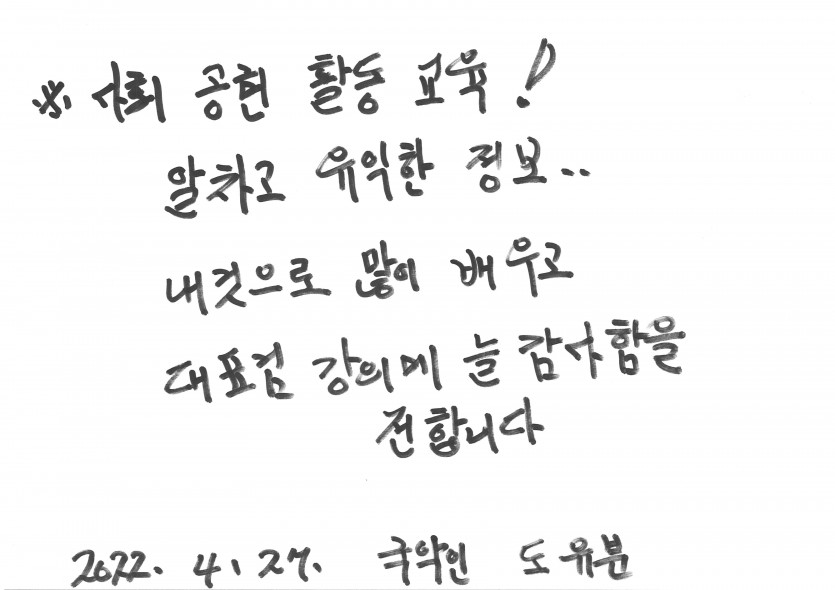 ※ 사회 공헌 활동 교육!
알차고 유익한 정보..
내것으로 많이 배우고
대표컴 강의에 늘 감사함을
전합니다
2022. 4. 27. 국악인 도유분